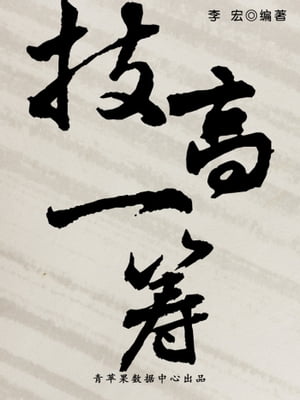 李 宏◎编著
技高一筹
青苹果数据中心出品